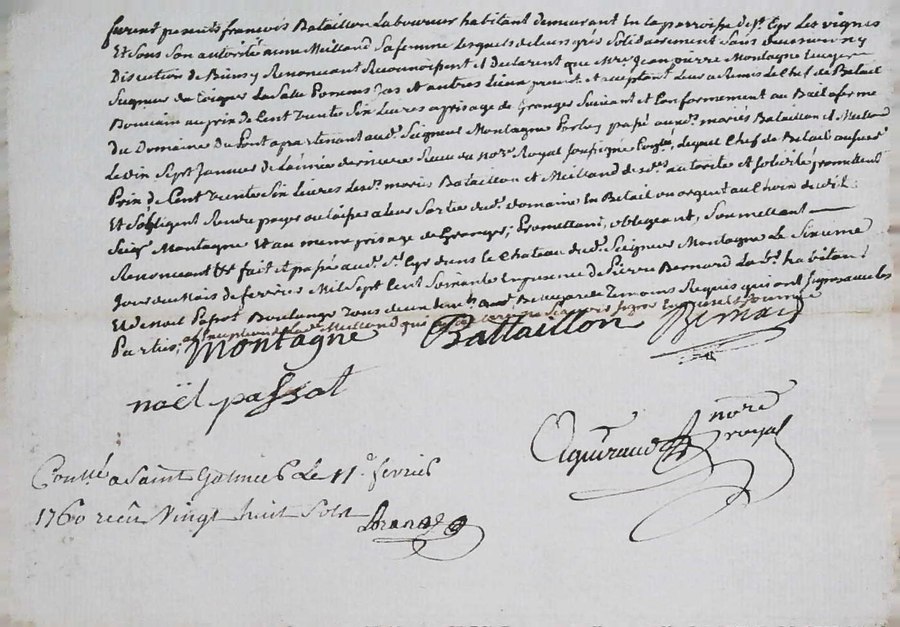 furent presents françois Bataillon Laboureur habitant demeurant en la parroisse de St Cyr Les vignes
Et Sous Son autorité anne Meilland Sa femme Lesquels de Leurs grés Solidairement Sans division ny
Discution de Biens y Renonceant Reconnoissent et Declarent que Mre Jean pierre Montagne
Seigneur de La Salle et autres Lieux present et acceptant Leur a Remis Le Chef de Betail
au prix de Cent trente Six Livres a prisage de Granger Suivant et Conformement au Bail a ferme
du Domaine Du Pont apartenant aud. Seigneur Montagne passé auxd. mariés Bataillon et Meilland
Le dix Sept Janvier de L'année derniere Receu du nore Royal Soussigné Lequel Chef de Betail aususd.
Prix de Cent trente Six Livres Lesd. mariés Bataillon et Meilland desd. autorité et Solidité promettent
Et Sobligent Rendre payer ou laisser a Leur Sortie dud. domaine En Betail ou argent au Choix dud.
Seigr Montagne Et au meme prisage de Granger; Promettant, obligeant, Soumettant
Renonceant &a fait et passé aud. St Cyr dans le Chateau dud. Seigneur Montagne Le Sixieme
Jour du Mois de fevrier Mil Sept Cent Soixante En presence de Pierre Bernard Labr habitant
Et de noël Passot Boulanger tous deux Bellegarde Temoins Requis qui ont Signé avec les
Parties, lad. Meilland qui
Montagne Battaillon Bernard
noël passot
Aguiraud nore royal
Conllé a Saint Galmier Le 11e fevrier
1760 reçu Vingt huit Sols